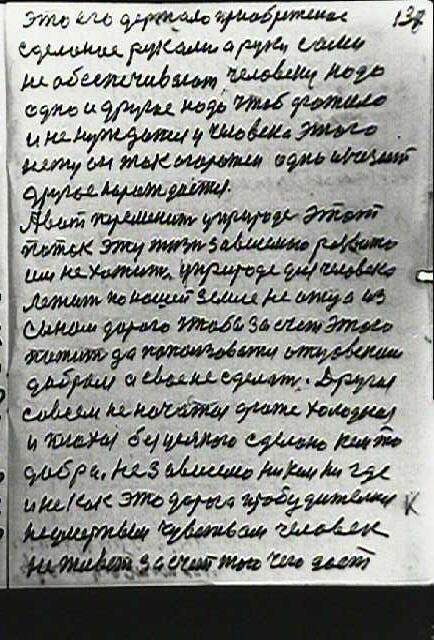 это его держало приобретенае 137
сделоное руками а руки сами
не обеспечивают человеку надо
одно и другое надо чтоб дражило
и не нуждался у человека этого
нету он так огорожен одно исчезает
другое нарождается.
А вот применит у природе этот
поток эту жизн зависемо развито
им не хотит. у природе для человека
лежит по нашей земле не отца из
сыном дорога чтобы за счет этого
пожит да попользоватся отцовским
добрым а свое не сделат. Другая
совсем не начатая даже холодная
и плохая без целного сделано кем то
добра. Независемо ни ким ни где
и не как это дорога пробудителная К
неумертным чувствам человек
не живет за счет того чего дает